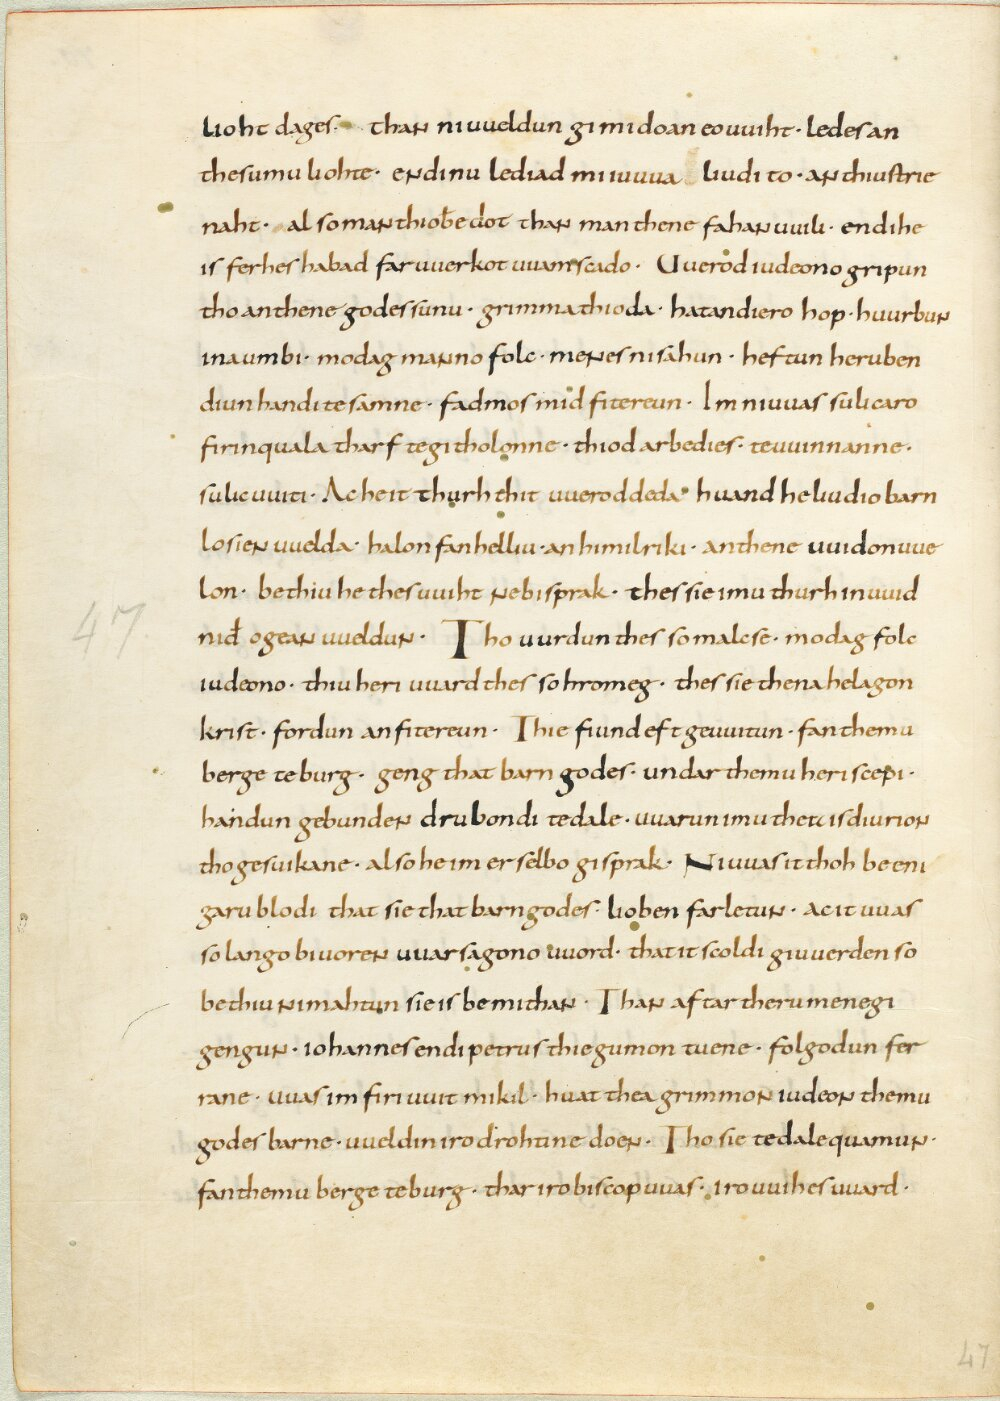 lioht dages· than ni uueldun gi mi doan eouuiht· ledes an
thesumu liohte· endi nu lediad mi iuuua liudi to· an thiustrie
naht· al so man thioƀe dot than man thene fahan uuili· endi he
is ferhes habad faruuerkot uuamscado· Uuerod iudeono gripun
tho an thene godes sunu· grimma thioda· hatandiero hop· huurbun
ina umbi· modag manno folc· menes ni sahun· heftun heruben
diun handi te samne· fadmos mid fitereun· Im ni uuas sulicaro
firinquala tharf te githolonne· thiodarbedies· te uuinnanne·
sulic uuiti· Ac he it thurh thit uuerod deda· huand he liudio barn
losien uuelda· halon fan helliu· an himilriki· an thene uuidon uue
lon· bethiu he thes uuiht ne bisprak· thes sie imu thurh inuuid
nid ogean uueldun· Tho uurdun thes so malcse· modag folc
iudeono· thiu heri uuard thes so hromeg· thes sie thena helagon
krist· fordun an fitereun· Thie fiund eft geuuitun· fan themu
berge te burg· geng that barn godes· undar themu heriscepi·
handun gebunden drubondi te dale· uuarun imu thea is diurion
tho gesuikane· al so he im er selbo gisprak· Ni uuas it thoh be eni
garu blodi that sie that barn godes· lioben farletun· ac it uuas
so lango biuoren uuarsagono uuord· that it scoldi giuuerden so
bethiu ni mahtun sie is bemithan· Than aftar theru menegi
gengun· iohannes endi petrus thie gumon tuene· folgodun fer
rane· uuas im firiuuit mikil· huat thea grimmon iudeon themu
godes barne· uueldin iro drohtine doen· Tho sie te dale quamun·
fan themu berge te burg· thar iro biscop uuas· iro uuihes uuard·
47
47